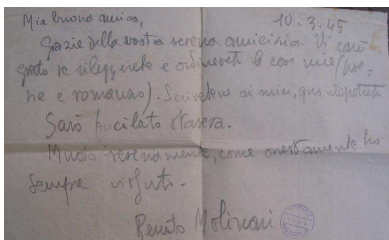 Mia buona amica, 10.3.45
Grazie della vostra serena amicizia. Vi sarò
grato se rileggerete e ordinerete le cose mie (poe-
sie e romanzo). Scrivetene ai miei, qus nipotini
Sarò fucilato stasera.
Muoio serenamente, come onestamente ho
sempre vissuto.
Renato Molinari